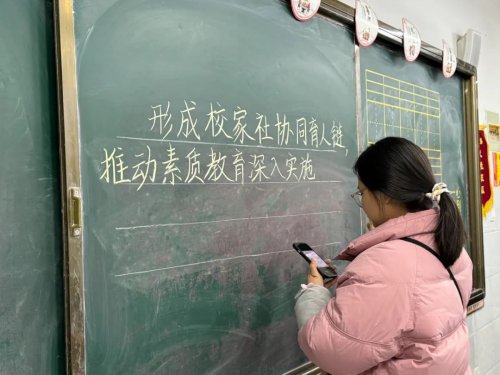 形成校家社协同育人链,
推动素质教育深入实施